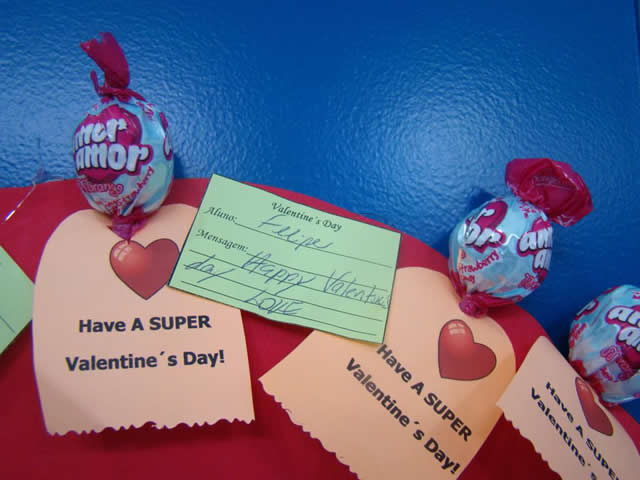 amor
amor
Morango
Strawberry
Valentine´s Day
Aluno: Felipe
Mensagem: Happy Valentine's
day
LOVE
Have A SUPER
Valentine´s Day!
amor
Strawberry
Have A SUPER
Valentine´s Day!
Have A SUPER
Valentine´s Day!